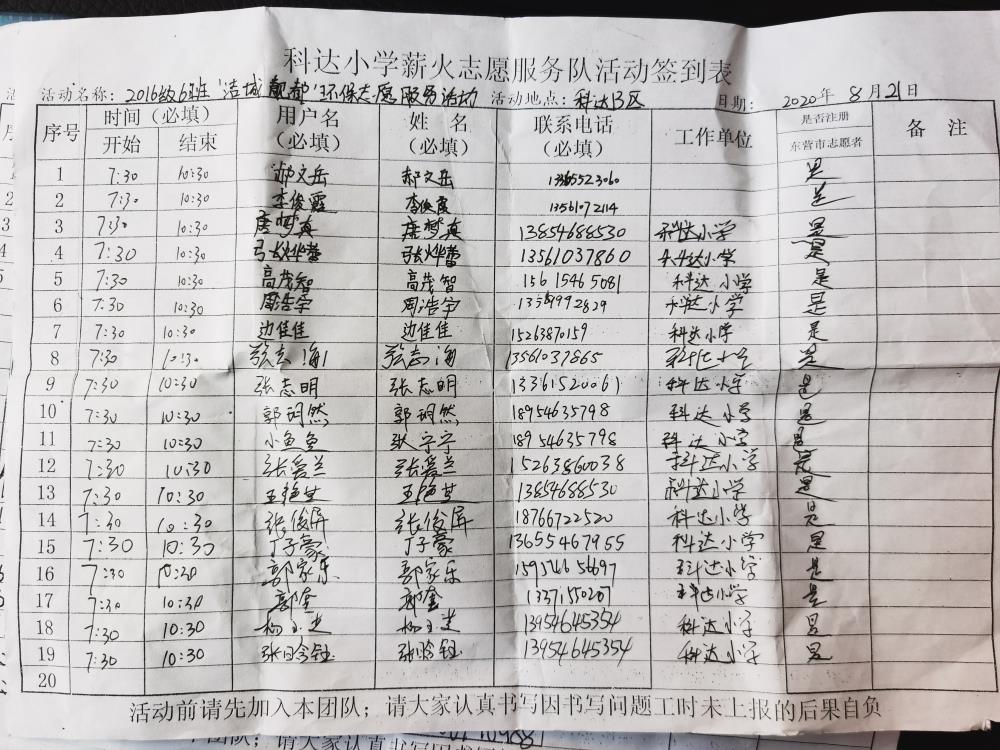 科达小学薪火志愿服务队活动签到表
活动名称：2016级6班'洁城靓都'环保志愿服务活动 活动地点：科达B区 日期：2020年8月21日
序号 时间（必填） 用户名（必填） 姓名（必填） 联系电话（必填） 工作单位 是否注册东营市志愿者 备注
开始 结束
1 7:30 10:30 郝文岳 郝文岳 是
2 7:30 10:30 李俊霞 李俊霞 13561072114 是
3 7:30 10:30 唐梦真 唐梦真 13854688530 科达小学 是
4 7:30 10:30 张烨蕾 张烨蕾 13561037860 科达小学 是
5 7:30 10:30 高茂智 高茂智 15615465081 科达小学 是
6 7:30 10:30 周浩宇 周浩宇 科达小学 是
7 7:30 10:30 边佳佳 边佳佳 15263870159 科达小学 是
8 7:30 10:30 张志海 张志海 13561037865 科达小学 是
9 7:30 10:30 张志明 张志明 13361520061 科达小学 是
10 7:30 10:30 郭玥然 郭玥然 18954635798 科达小学 是
11 7:30 10:30 小鱼鱼 耿宁宁 18954635798 科达小学 是
12 7:30 10:30 张爱兰 张爱兰 15263860038 科达小学 是
13 7:30 10:30 13854688530 科达小学 是
14 7:30 10:30 张俊屏 张俊屏 18766722520 科达小学 是
15 7:30 10:30 丁子蒙 丁子蒙 13655467955 科达小学 是
16 7:30 郭家乐 郭家乐 科达小学 是
17 7:30 10:30 郭奎 郭奎 科达小学 是
18 7:30 10:30 13954645354 科达小学 是
19 7:30 10:30 张晗钰 张晗钰 13954645354 科达小学 是
20
活动前请先加入本团队；请大家认真书写因书写问题工时未上报的后果自负